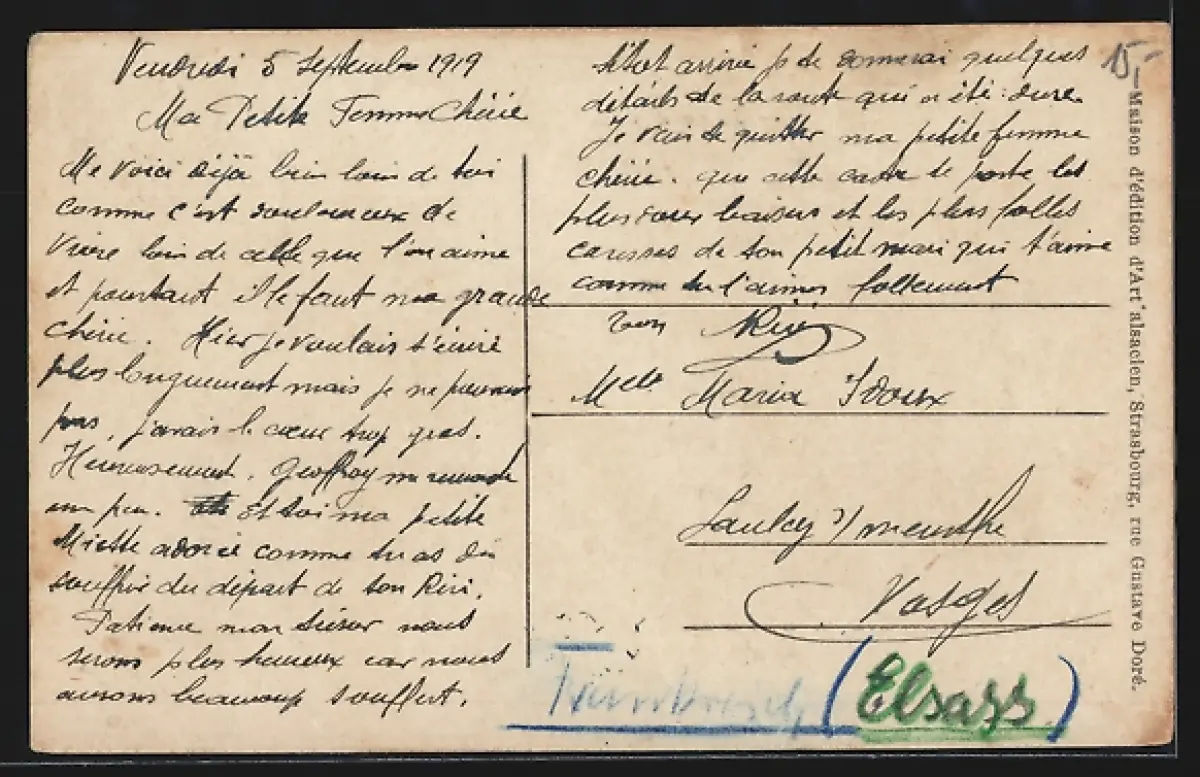 Vendredi 5 Septembre 1919
Ma Petite Femme Chérie
Me voici déjà bien loin de toi
comme c'est douloureux de
vivre loin de celle que l'on aime
et pourtant il le faut ma grande
chérie. Hier je voulais t'écrire
plus longuement mais je ne pouvais
pas, j'avais le cœur trop gros.
Heureusement. Geoffroy me remonte
un peu. Et toi ma petite
Miette adorée comme tu as dû
souffrir du départ de ton Riri.
Patience mon trésor nous
serons plus heureux car nous
aurons beaucoup souffert.
arrivé je te donnerai quelques
détails de la route qui a été dure.
Je vais te quitter ma petite femme
chérie. que cette carte te porte les
plus doux baisers et les plus folles
caresses de ton petit mari qui t'aime
comme tu l'aimes follement
ton Riri
Melle Maria Idoux
Saulcy s/ meurthe
Vosges
Frankreich (Elsass)
15-
Maison d'édition d'Art alsacien, Strasbourg, rue Gustave Doré.